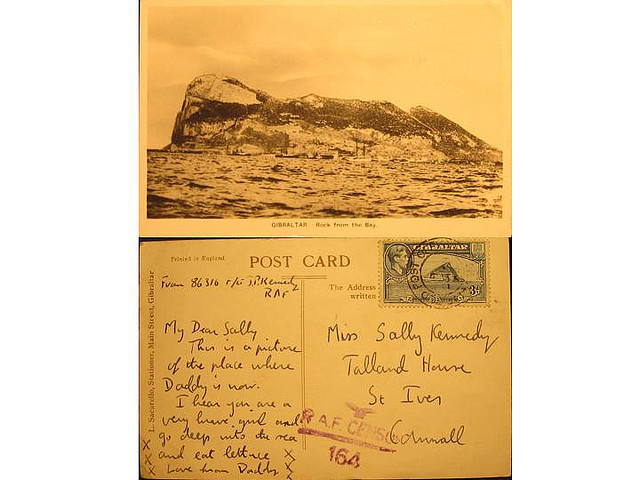 GIBRALTAR. Rock from the Bay.
Printed in England
POST CARD
From 86316
J.P. Kennedy
RAF
The Address
written
GIBRALTAR
3d
L. Sacarello, Stationer, Main Street, Gibraltar
My Dear Sally
This is a picture
of the place where
Daddy is now.
I hear you are a
very brave girl and
go deep into the sea
and eat lettuce
Love from Daddy
X X X X X X
Miss Sally Kennedy
Talland House
St Ives
Cornwall
R.A.F. CENSOR
164